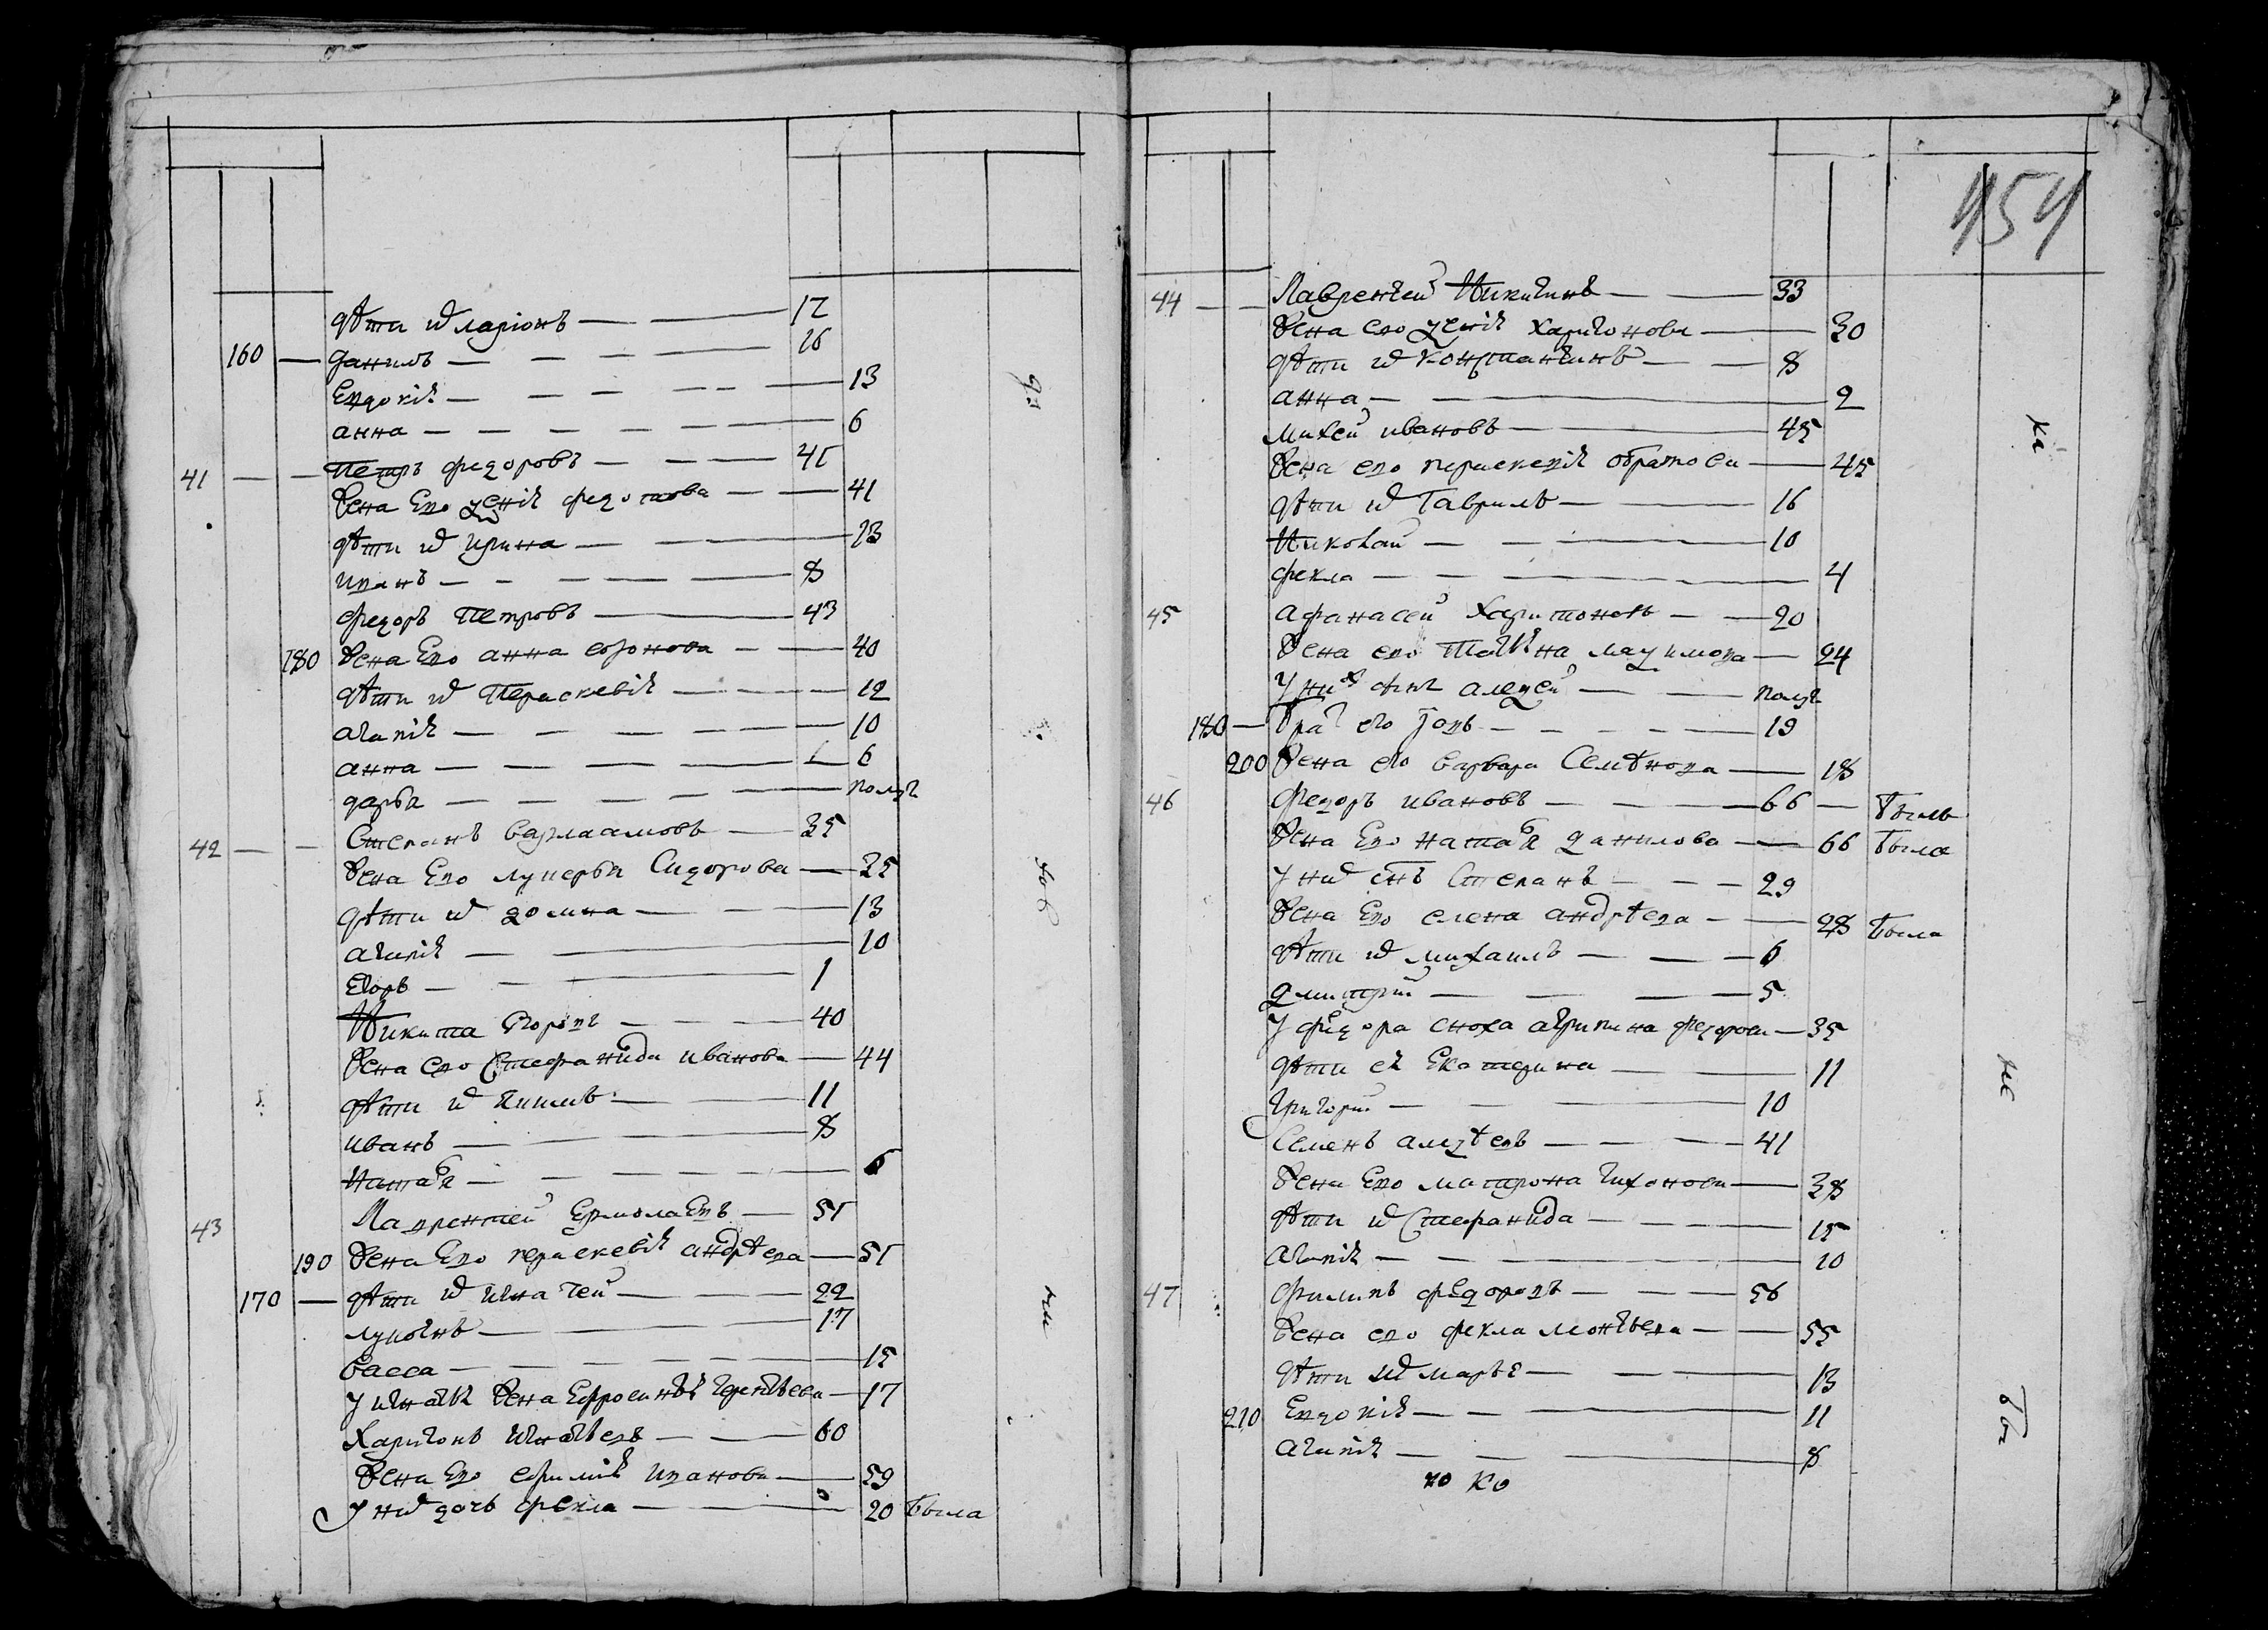 дѣти их ларіонъ — — 12
160 — данилъ — — — — 16
Евдокія — — — — — 13
анна — — — — — — 6
41 — — Петръ федоровъ — — — 45
Жена Ево ѯенія федотова — — 41
дѣти их ирина — — — 13
иванъ — — — — — 8
федоръ Петровъ — 43
180 Жена Ево анна софонова — — 40
дѣти их Параскевія — — — — 12
агапія — — — — — 10
анна — — — — — 6
дарья — — — — — — полуг
42 — — Степанъ варлаамовъ — 35
Жена Ево лукерья Сидорова — 35
дѣти их домна — — — 13
агапія — — 10
Егоръ — — — 1
Никита Егоровъ — — — 40
Жена ево Стефанида иванова — 44
дѣти их — — 11
иванъ — — 8
Наталья — — — — — 6
43 Лаврентей Ермолаевъ — 51
190 Жена Ево параскевія андрѣева — 51
170 — дѣти их игнатей — — — 22
лукиянъ — — — 17
васса — — — — — — 15
у игнатья Жена Ефросинья — 17
Харитонъ игнатьевъ — — — 60
Жена Ево ефимія иванова — 59
у них дочь фекла — — — 20 была
454
44 — — Лаврентей Никитинъ — — 33
Жена ево ѯенія харитонова — 30
дѣти их константинъ — — 8
анна — — 2
михей ивановъ — — 45
Жена ево параскевія — 45
дѣти их Гаврилъ — — 16
Николай — — — — 10
фекла — — — — — 4
45 афанасей Харитоновъ — — 20
Жена ево Татьяна маѯимова — 24
у них сынъ алеѯей — — полуг
180 — Брат его — — — — — 19
200 Жена его варвара Семѣнова — 18
46 федоръ ивановъ — — — — 66 — былъ
Жена Ево наталья данилова — — 66 была
у них снъ Степанъ — — — 29
Жена Ево елена андрѣева — — 28 была
дѣти их михаилъ — — — 6
дмитрий — — — — 5
у федора сноха агрипина федорова — 35
дѣти ея Екатерина — — 11
Григорий — — — 10
Семенъ алеѯѣевъ — — — 41
Жена Ево матрона тихонова — 38
дѣти их Стефанида — — — — 15
агапія — — — — 10
47 филипъ федоровъ — — — 56
Жена ево фекла леонтьева — — 55
дѣти их марья — — — 13
210 Евдокія — — — 11
агапія — — — 8